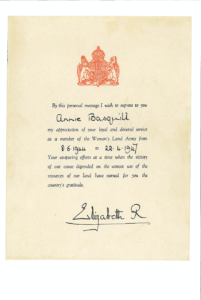 By this personal message I wish to express to you
Annie Basquill
my appreciation of your loyal and devoted service
as a member of the Women's Land Army from
8.6.1944 to 22.4.1947
Your unsparing efforts at a time when the victory
of our cause depended on the utmost use of the
resources of our land have earned for you the
country's gratitude.
Elizabeth R